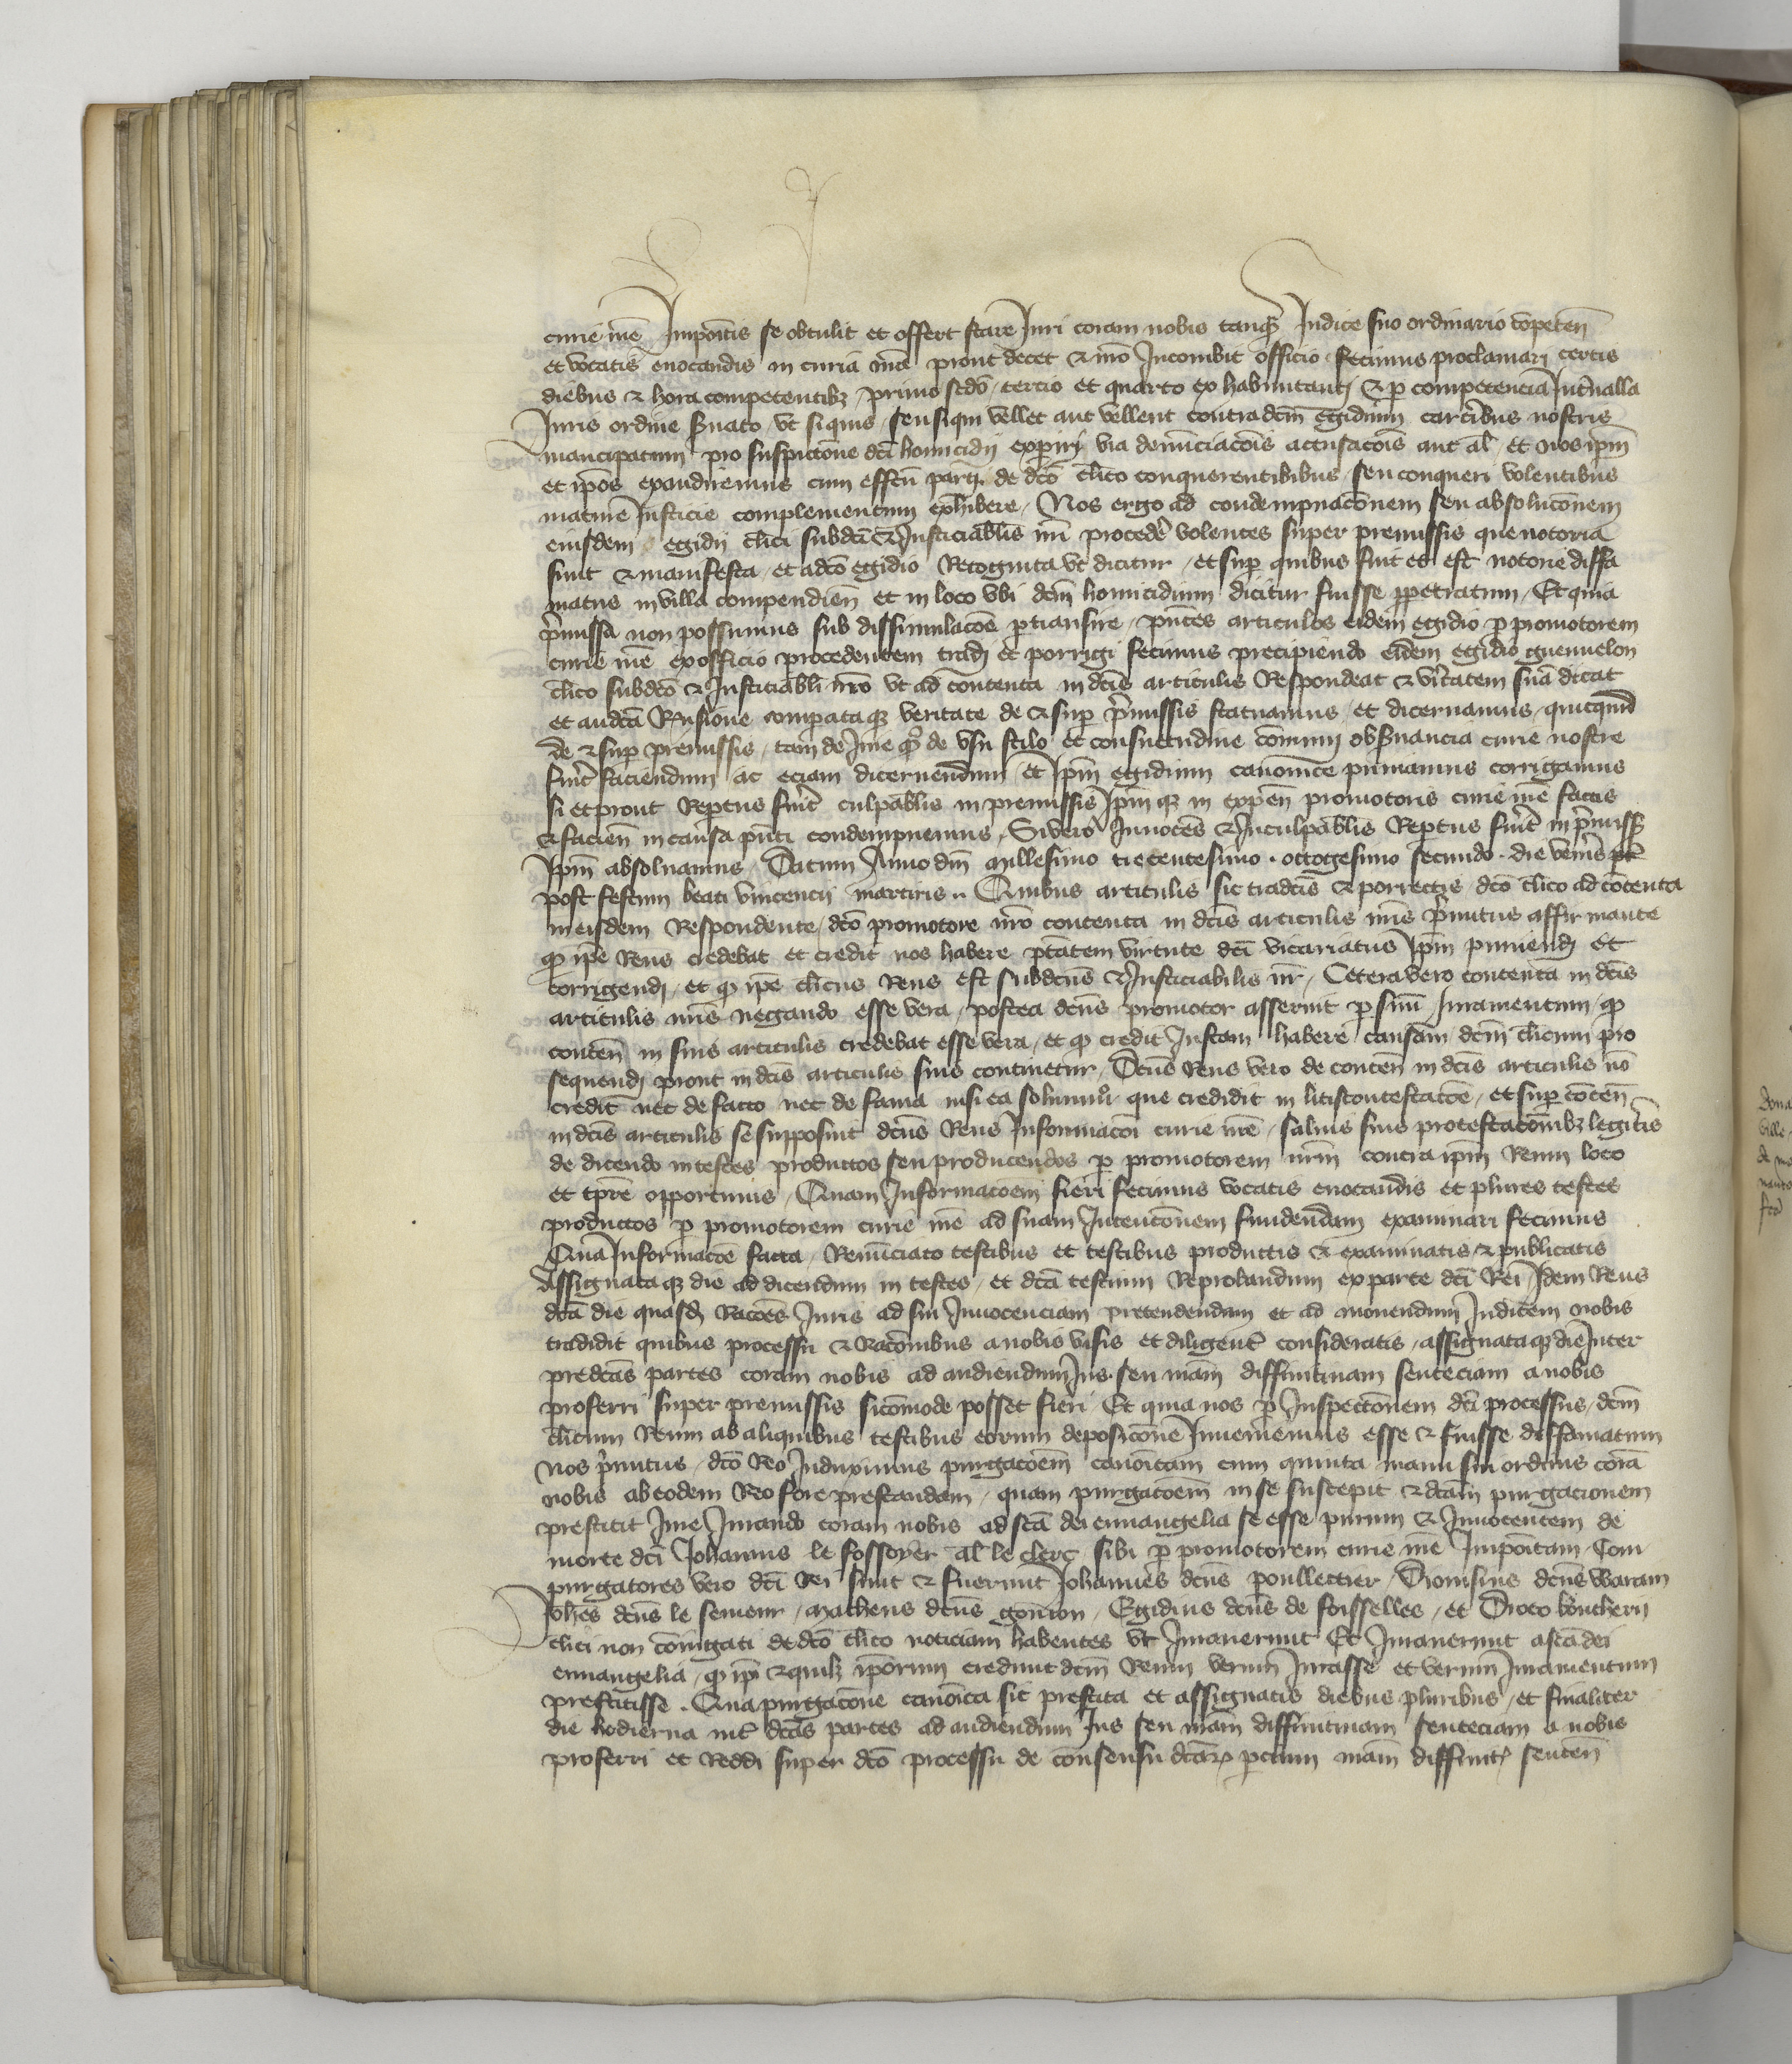 curie nr̄e Impoitis se obtulit et offert stare Juri coram nobis tanq̃ Judice suo ordinario cōpeten̄
et vocatis euocandis in curia nr̄a prout decet & nr̄o Incombit officio fecimus proclamari certis
diebus & hora competentibꝫ primo scdō tercio et quarto ex habundanti & p competencia Int̄ualla
Juris ordine s̄uato vt si quis seu siqui vellet aut vellent contra dcm̄ Egidium carcerībus nostris
mancipatum pro suspicc̄one dcī homicidij exp̄iri via denūciacōis accusacōis aut al̄ et nos ipm̄
et ipōs exaudiremus cum effcū parti de dcō cl̄ico conquerentibibus seu conqueri volentibus
mature Justicie complementum exhibere Nos ergo ad condempnacōnem seu absolucōnem
eiusdem egidij cl̄ici subdcī & Justiciabl̄is nr̄i procedē volentes super premissis que notoria
sunt & manifesta et a dcō egidio Recognita vt dicitur et sup quibus fuit et est notorie diffa
matus in villa compendien̄ et in loco vbi dcm̄ homicidium dicitur fuisse ꝑpetratum Et quia
p̄missa non possumus sub dissimulacōe ꝑtransire pn̄tes articulos eidem egidio ꝑ promotorem
curie nr̄e ex officio procedentem tradi et porrigi fecimus precipiendo eidem egidio guenuelon
cl̄ico subdcō & Justiciabl̄i nr̄o vt ad contenta in dcīs articulis Respondeat & vītatem suā dicat
et audcā Rn̄sione compataqꝫ veritate de & sup p̄missis statuamus et dicernamus quicquid
de & sup premissis tam de Jure q̃ de vsu stilo et consuetudine cōmuni obs̄uancia curie nostre
fuīt faciendum ac eciam dicernendum et Ipm̄ egidium canonice puniamus corrigamus
si et prout Reꝑtus fuīt culpabl̄is in premissis Ipm̄qꝫ in expen̄ promotoris curie nr̄e factis
& facien̄ in causa pn̄ti condempnemus Si vero Innocēs & Inculpabl̄is Reꝑtus fuīt in p̄miss̄
Ipm̄ absoluamus Datum Anno dm̄ millesimo trecentesimo octogesimo secundo die ven̄is
post festum beati vincencij martiris Quibus articulis sic tradcīs & porrectis dcō cl̄ico ad cōtenta
in eisdem Respondente dcō promotore nr̄o contenta in dcīs articulis nr̄is p̄mitus affirmante
ꝙ ipē Reus credebat et credit nos habere ptātem virtute dcī vicariatus Ipm̄ puniendi et
corrigendi et ꝙ ipē cl̄icus Reus est subdcūs & Justiciabilis nr̄ Cetera vero contenta in dcīs
articulis nr̄is negando esse vera postea dcūs promotor asseruit ꝑ suū Juramentum ꝙ
conten̄ in suis articulis credebat esse vera et ꝙ credit Justam habere causam dcm̄ cl̄icum pro
sequendi prout in dcīs articulis suis continetur Dcūs Reus vero de conten̄ in dcīs articulis nō
credit nec de facto nec de fama nisi ea solummō que credidit in litiscontestacōe et sup cōten̄
in dcīs articulis se supposuit dcūs Reus Informacōi curie nr̄e saluis suis protestacōnibꝫ legitīs
de dicendo in testes productos seu producendos ꝑ promotorem nr̄m contra ipm̄ Reum loco
et tpr̄e opportunis Quam Informacōem fieri fecimus vocatis euocandis et plures testes
productos ꝑ promotorem curie nr̄e ad suam Intencōnem fundendam examinari fecimus
Qua Informacōe facta Renūciato testibus et testibus productis & examinatis & publicatis
Assignataqꝫ die ad dicendum in testes et dcā testium Reprobandum ex parte dcī Rei Idem Reus
dcā die quasdā Racōes Juris ad sui Innocenciam pretendendam et ad monendum Judicem nobis
tradidit quibus processu & Racōnibus a nobis visis et diligent̄ consideratis assignataqꝫ die Inter
predcās partes coram nobis ad audiendum Jus seu nr̄am diffinitiuam sentēciam a nobis
proferri super premissis si cōmode posset fieri Et quia nos ꝑ Inspectōnem dcī processus dcm̄
cl̄icum Reum ab aliquibus testibus eorum deposicōne Inuenimus esse & fuisse diffamatum
Nos p̄mitus dcō Reo Induximus purgacōem̄ canoīcam cum quinta manu sui ordinis corā
nobis ab eodem Reo fore prestandam quam purgacōem̄ in se suscepit & dcām purgacionem
prestitit Jure Jurando coram nobis ad scā dei euuangelia se esse purum & Innocentem de
morte dcī Johannis le fossoyer al̄ le clerc sibi ꝑ promotorem curie nr̄e Impoītam Com
purgatores vero dcī Rei sunt & fuerunt Johannes dcūs poullectier Dionisius dcūs Waram
Joh̄es dcūs le semeur Matheus dcūs gonion Egidius dcūs de foisselles et Droco boucherii
cl̄ici non coniugati de dcō cl̄ico noticiam habentes vt Jurauerunt Et Jurauerunt a scā dei
euuangelia ꝙ ipī & quil̄ꝫ ipōrum credunt dcm̄ Reum verum Jurasse et verum Juramentum
prestitisse Qua purgacōne canoīca sic prestita et assignatis diebus pluribus et finaliter
die hodierna int̄ dcās partes ad audiendum Jus seu nr̄am diffinitiuam sentēciam a nobis
proferri et Reddi super dcō processu de consensu dcārꝝ pcium nr̄am diffinit̄ senten̄